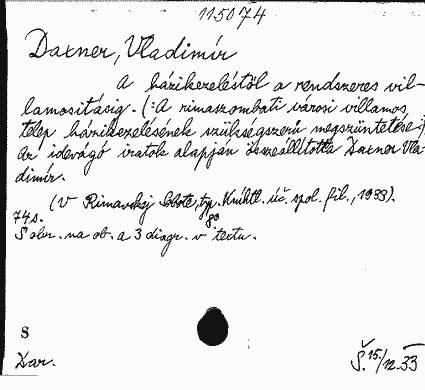 115074
Daxner, Vladimír
A házikezeléstől a rendszeres vil-
lamosításig. (:A rimaszombati városi villamos
telep házikezelésének szükségszerű megszüntetése:)
Az idevágó iratok alapján összeállította Daxner Vla-
dimír.
(V Rimavskej Sobote, typ. Kníhtl. úč. spol. fil., 1933).
74s. 8°
S obr. na ob. a 3 diagr. v textu.
S
Dar. Š. 15/12.33